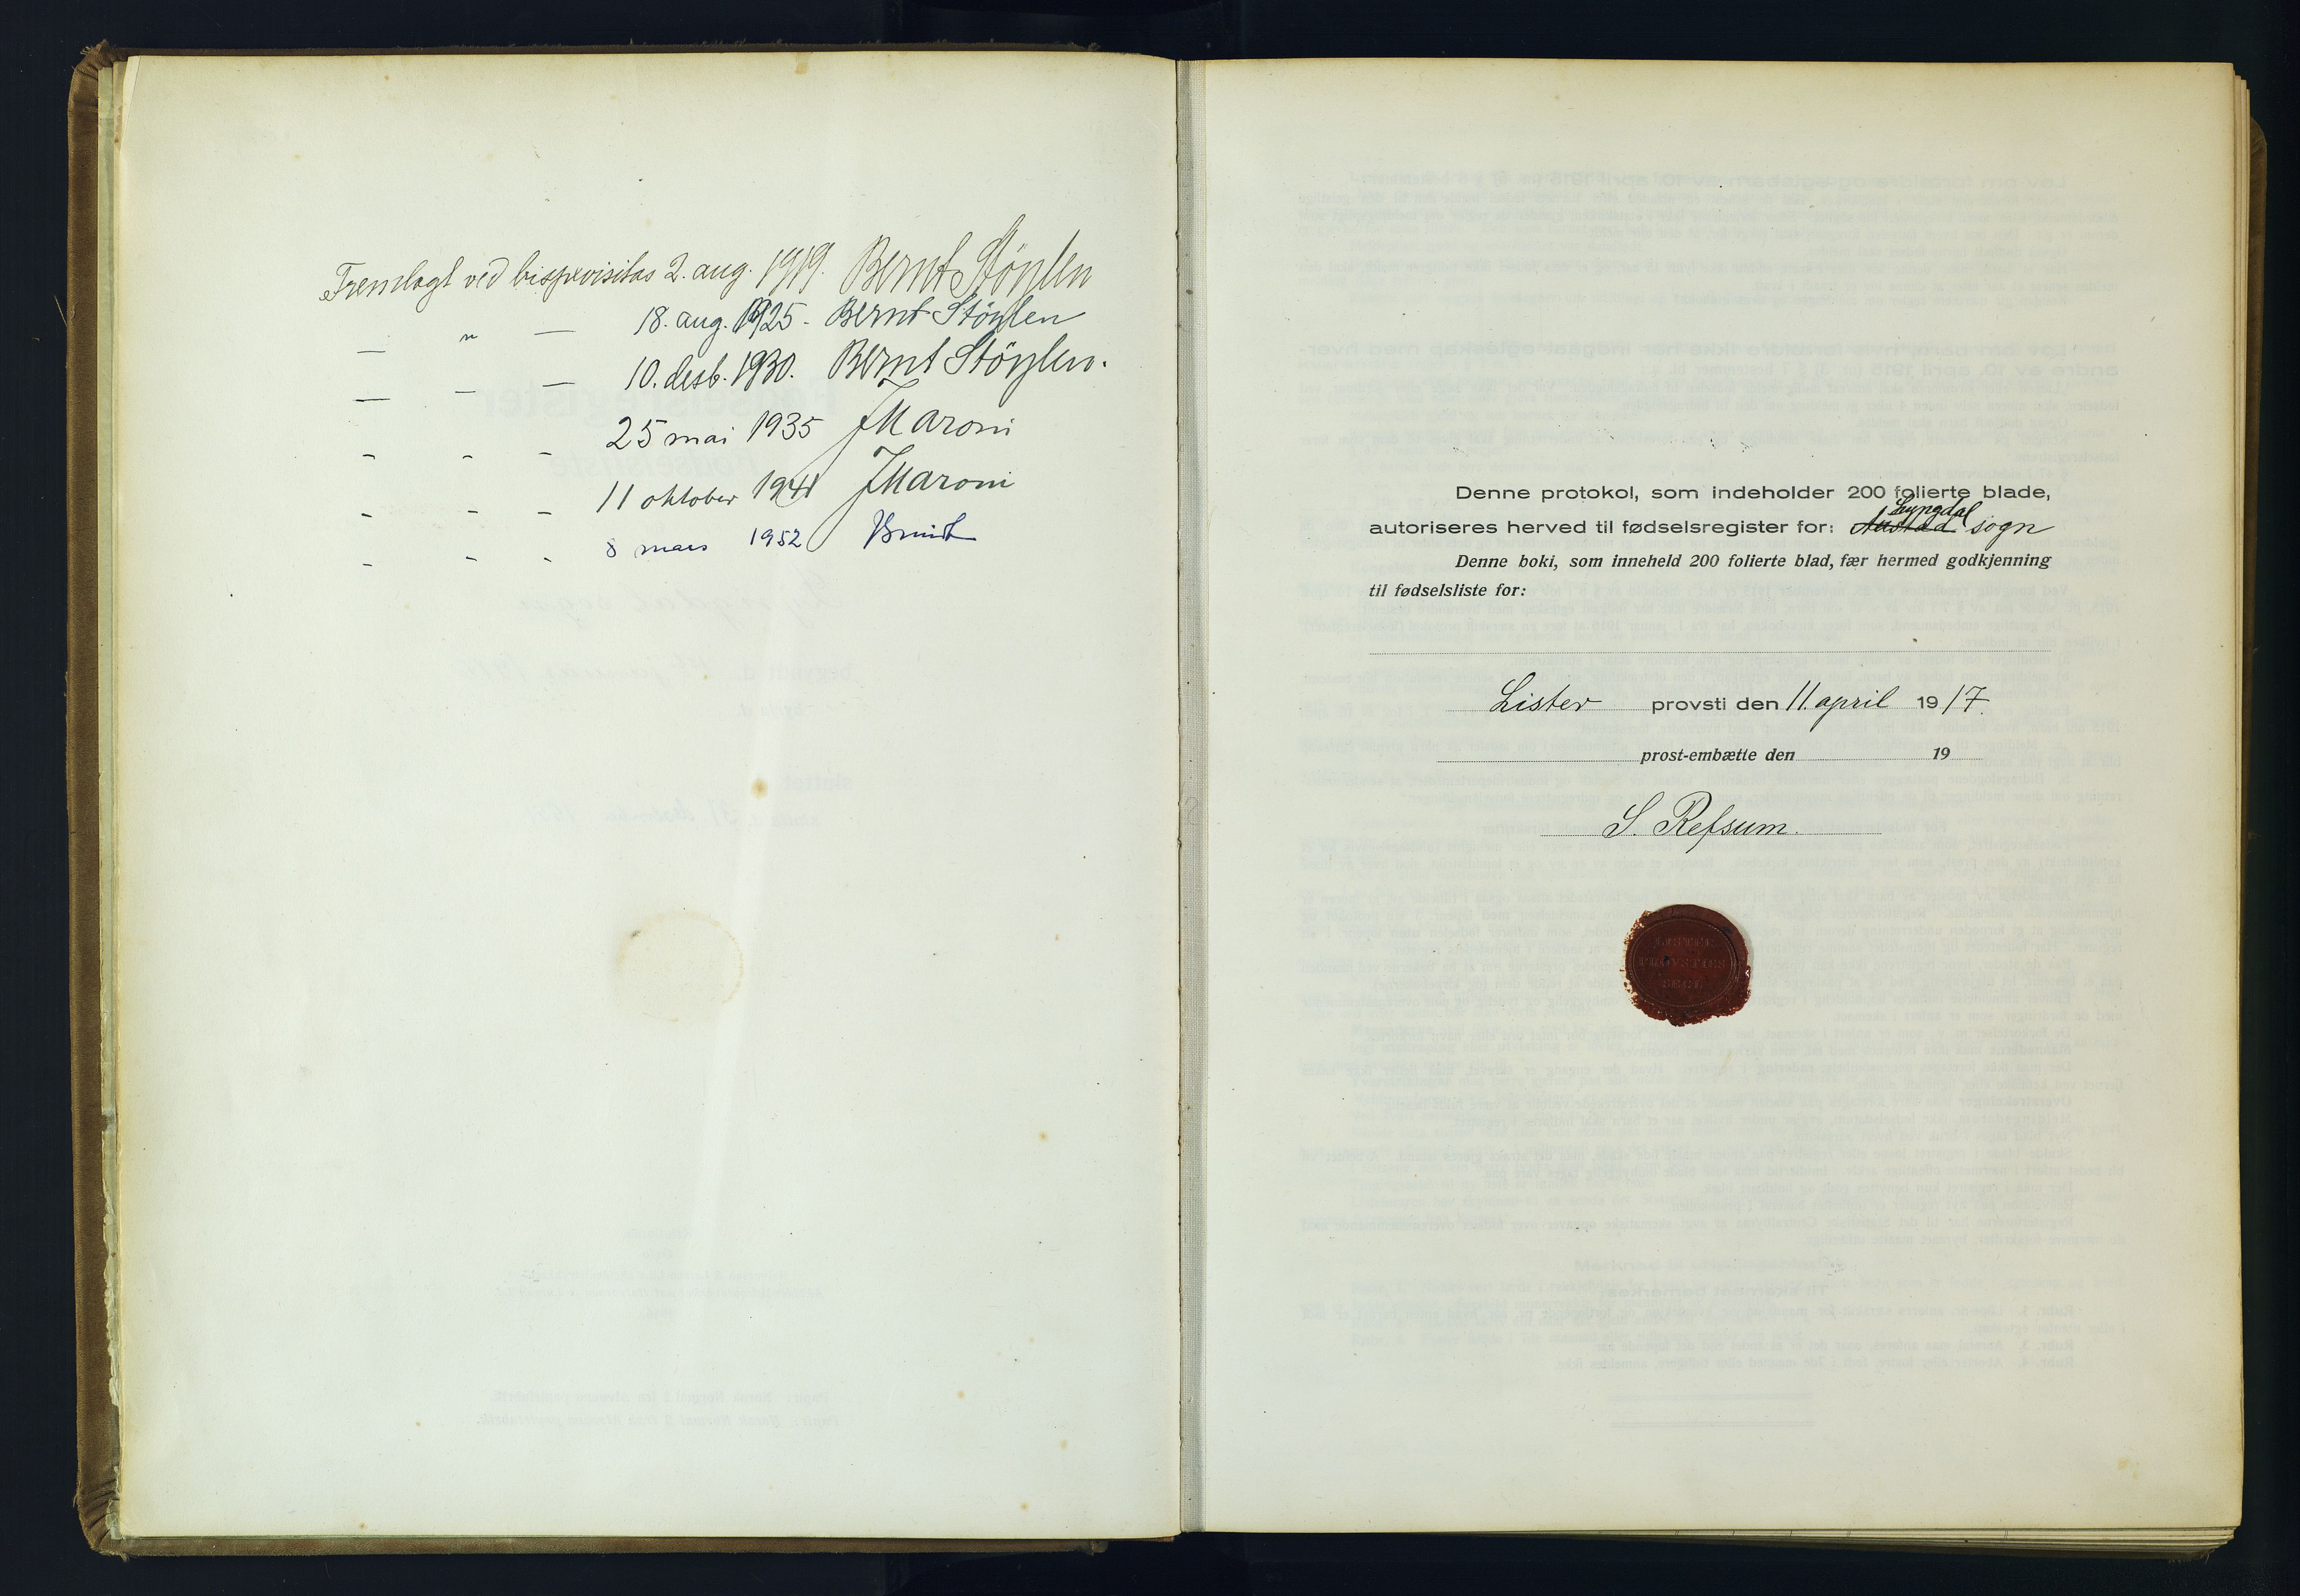 Fremlagt ved bispevisitas 2. aug. 1919. Bernt Støylen
— " — 18. aug. 1925. Bernt Støylen
— - — 10. desb. 1930. Bernt Støylen.
- - - 25 mai 1935 J Maroni
- - - 11 oktober 1941 J Maroni
- - - 8 mars 1952
Denne protokol, som indeholder 200 folierte blade,
Lyngdal
autoriseres herved til fødselsregister for: Austad sogn
Denne boki, som inneheld 200 folierte blad, fær hermed godkjenning
til fødselsliste for:
Lister provsti den 11. april 1917.
prost-embætte den 19
S. Refsum.
LISTER
PROVSTIES
SEGL